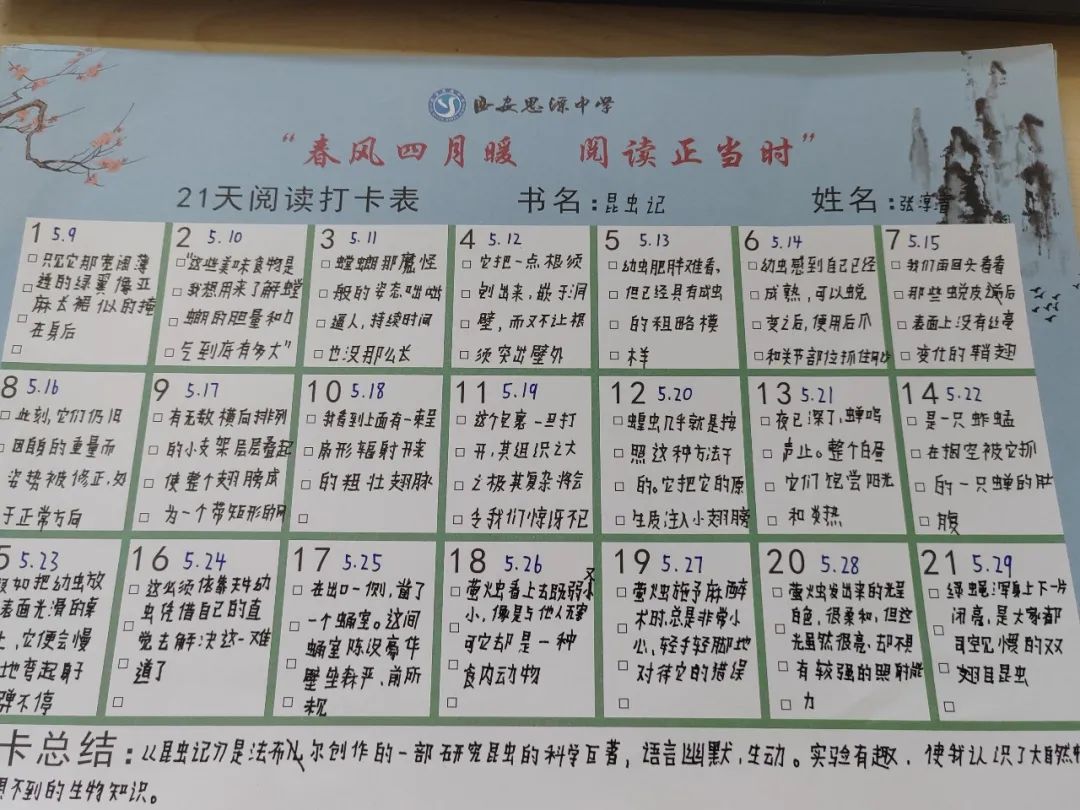 西安思源中学
“春风四月暖 阅读正当时”
21天阅读打卡表 书名:昆虫记 姓名:张淳
1 5.9
只见它那宽阔薄
透的绿翼像亚
麻长裙似的掩
在身后
2 5.10
“这些美味食物是
我想用来了解螳
螂的胆量和力
气到底有多大”
3 5.11
螳螂那魔怪
般的姿态咄咄
逼人,持续时间
也没那么长
4 5.12
它把一点根须
刨出来,嵌于洞
壁,而又不让根
须突出壁外
5 5.13
幼虫肥胖难看,
但已经具有成虫
的粗略模
样
6 5.14
幼虫感到自己已经
成熟,可以蜕
变之后,便用后爪
和关节部位抓住
7 5.15
我们再回头看看
那些蜕皮后
表面上没有丝毫
变化的鞘翅
8 5.16
此刻,它们仍旧
因自身的重量而
姿势被修正,如
于正常方向
9 5.17
有无数横向排列
的小支架层层叠起
使整个翅膀成
为一个带矩形的网
10 5.18
我看到上面有一束呈
扇形辐射开来
的粗壮翅脉
11 5.19
这个包裹一旦打
开,其组织之大
之极其复杂将会
令我们惊讶不已
12 5.20
蝗虫几乎就是按
照这种方法干
的。它把它的原
生质注入小翅膀
13 5.21
夜已深了,蝉鸣
声止。整个白昼
它们饱尝阳光
和炎热
14 5.22
是一只蚱蜢
在掘空被它抓
的一只蝉的肚
腹
5 5.23
如把幼虫放
表面光滑的桌
上,它便会慢
地弯起身子
弹不停
16 5.24
这必须依靠天牛幼
虫凭借自己的直
觉去解决这一难
道了
17 5.25
在出口一侧,凿了
一个蛹室。这间
蛹室陈设豪华
壁垒森严,前所
未见
18 5.26
萤火虫看上去既弱又
小,像是与他人无害
可它却是一种
食肉动物
19 5.27
萤火虫施予麻醉
术时,总是非常小
心,轻手轻脚地
对待它的猎误
20 5.28
萤火虫发出来的光呈
白色,很柔和,但这
光虽然很亮,却不具
有较强的照射能
力
21 5.29
绿蝇:浑身上下一片
闭亮,是大家都
司空见惯的双
翅目昆虫
卡总结:《昆虫记》是法布尔创作的一部研究昆虫的科学巨著,语言幽默,生动。实验有趣,使我认识了大自然
想不到的生物知识。